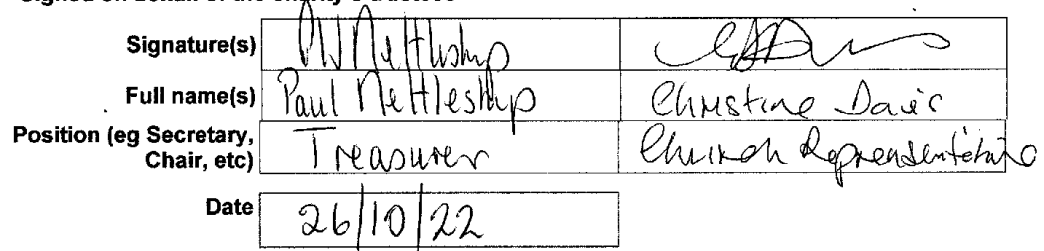 Signature(s) PJ Nettleship
Full name(s) Paul Nettleship Christine Davis
Position (eg Secretary,
Chair, etc) Treasurer Church Representative
Date 26/10/22